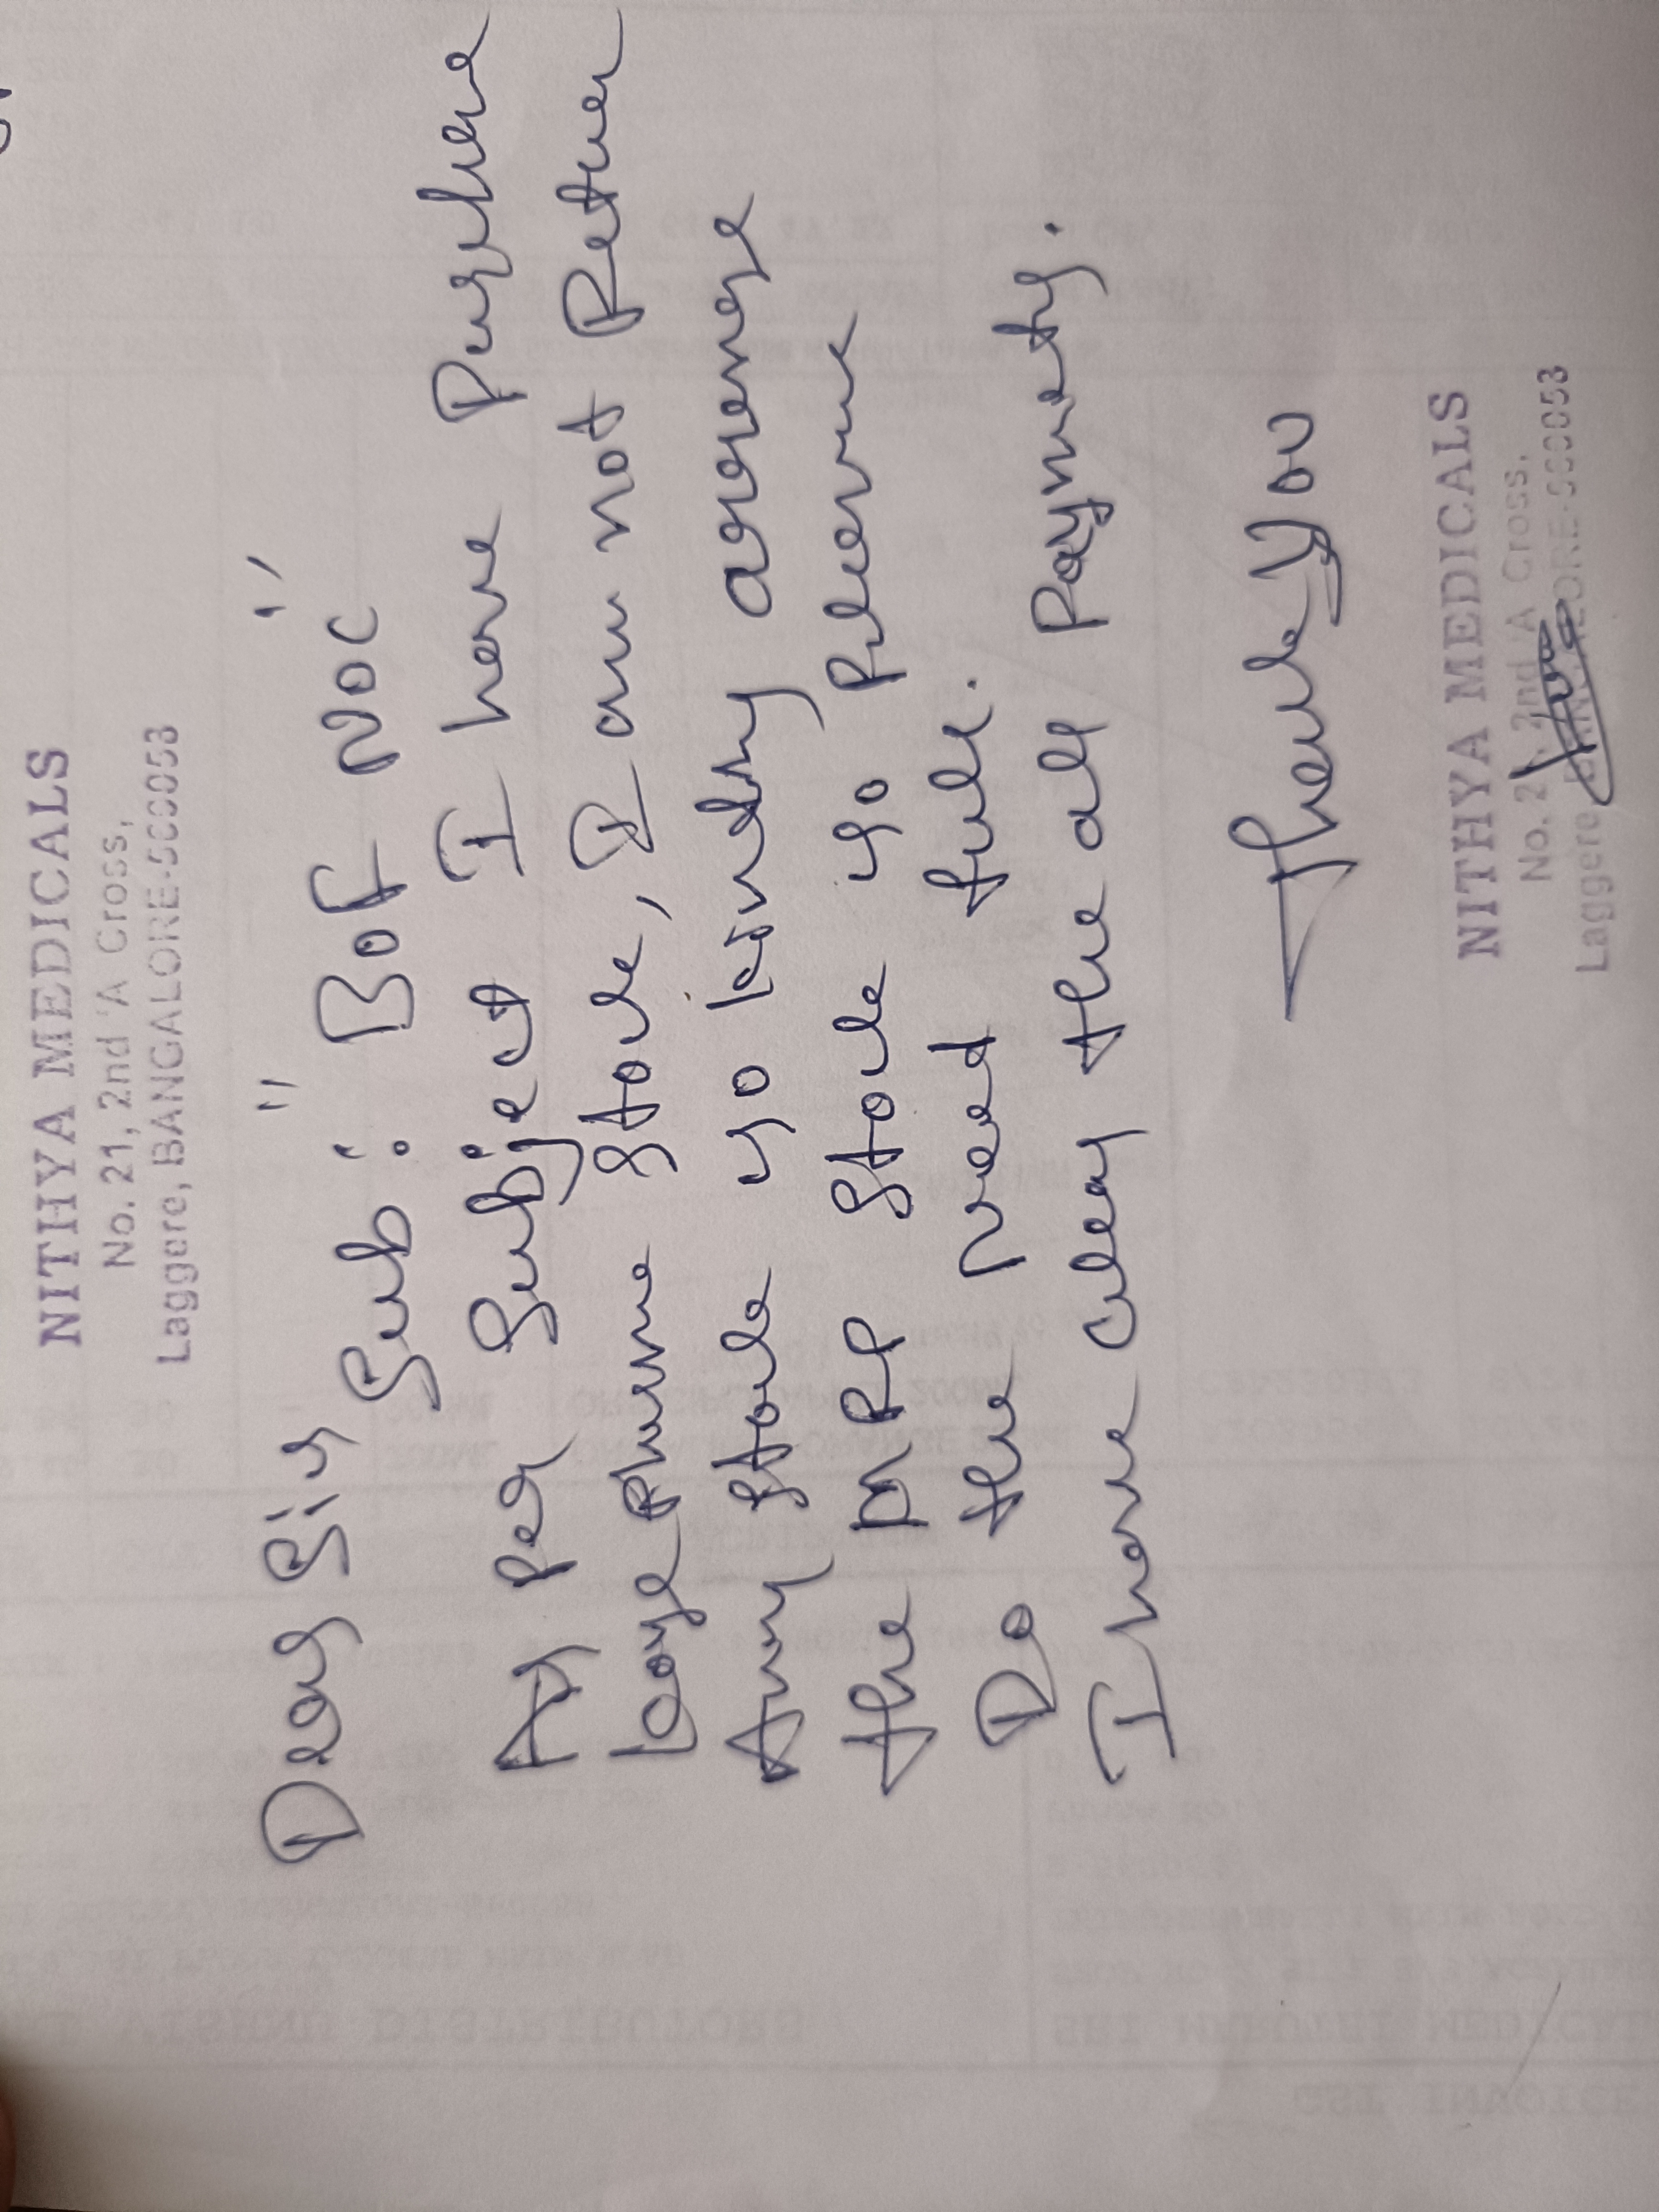 NITHYA MEDICALS
No. 21, 2nd 'A Cross,
Laggere, BANGALORE-560058
Dear Sir
" "
Sub : Bof NOC
As per Subject I have Purchase
large Stock, I am not Return
Any Stock so kindly arrange
the Stock so Please
Do the need full.
I have clear the all Payments.
Thank You
NITHYA MEDICALS
No. 21, 2nd 'A Cross,
Laggere, BANGALORE-560058